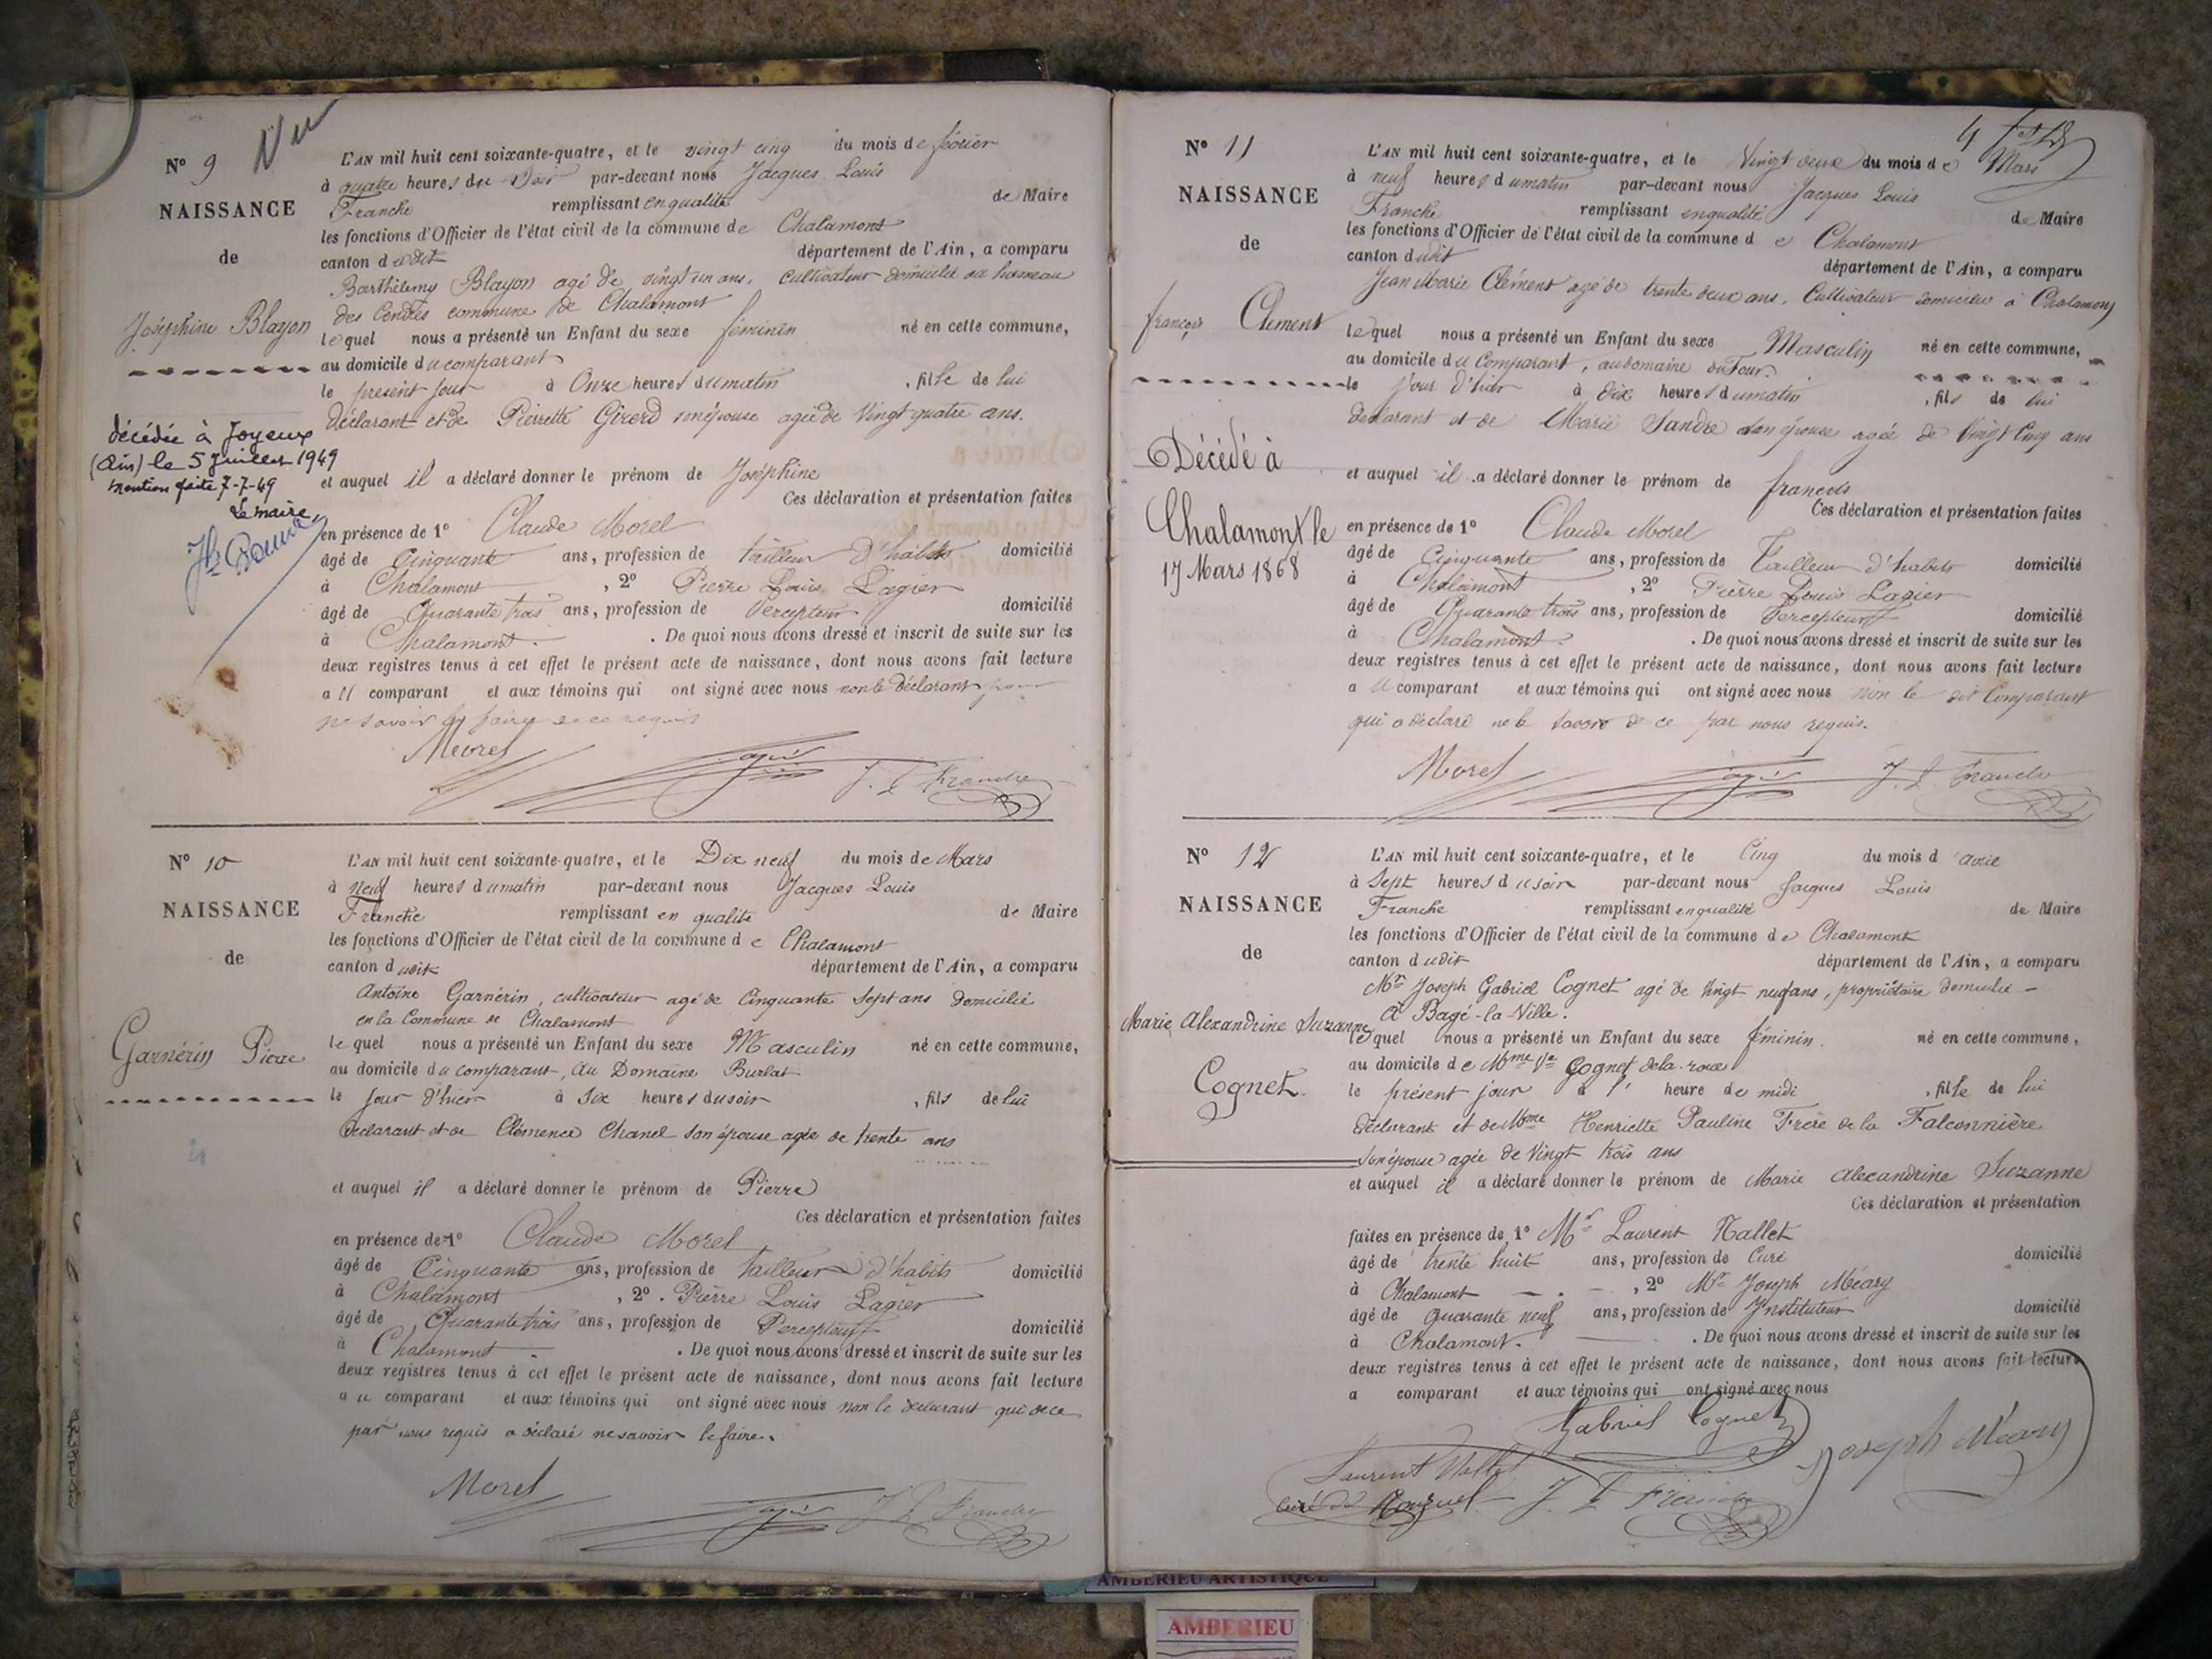 Nº 9
Vu
NAISSANCE
de
Joséphine Blayon
décédée à Joyeux
(Ain) le 5 Juillet 1949
Mention faite 7-7-49
Le maire,
L'AN mil huit cent soixante-quatre, et le vingt cinq du mois de février
à quatre heures du soir par-devant nous Jacques Louis
Franche remplissant en qualité de Maire
les fonctions d'Officier de l'état civil de la commune de Chalamont
canton dudit département de l'Ain, a comparu
Barthélemy Blayon agé de vingt un ans, cultivateur domicilié au hameau
des commune de Chalamont
lequel nous a présenté un Enfant du sexe féminin né en cette commune,
au domicile du comparant
le présent jour à Onze heures du matin , fille de lui
déclarant et de Pierrette Girerd son épouse agée de Vingt quatre ans.
et auquel il a déclaré donner le prénom de Joséphine
Ces déclaration et présentation faites
en présence de 1º Claude Morel
âgé de Cinquante ans, profession de tailleur d'habits domicilié
à Chalamont , 2º Pierre Louis Lagier
âgé de Quarante trois ans, profession de Percepteur domicilié
à Chalamont. . De quoi nous avons dressé et inscrit de suite sur les
deux registres tenus à cet effet le présent acte de naissance, dont nous avons fait lecture
a u comparant et aux témoins qui ont signé avec nous non le déclarant pour
ne savoir le faire de ce requis
Morel Lagier J. L. Franche
Nº 10
NAISSANCE
de
Garnérin Pierre
L'AN mil huit cent soixante-quatre, et le Dix neuf du mois de Mars
à neuf heures du matin par-devant nous Jacques Louis
Franche remplissant en qualité de Maire
les fonctions d'Officier de l'état civil de la commune de Chalamont
canton dudit département de l'Ain, a comparu
Antoine Garnérin, cultivateur agé de Cinquante Sept ans domicilié
en la Commune de Chalamont
lequel nous a présenté un Enfant du sexe Masculin né en cette commune,
au domicile du comparant, au Domaine Burlat
le jour d'hier à Six heures du soir , fils de lui
déclarant et de Clémence Chanel son épouse agée de trente ans
et auquel il a déclaré donner le prénom de Pierre
Ces déclaration et présentation faites
en présence de 1º Claude Morel
âgé de Cinquante ans, profession de tailleur d'habits domicilié
à Chalamont , 2º . Pierre Louis Lagier
âgé de Quarante trois ans, profession de Percepteur domicilié
à Chalamont . De quoi nous avons dressé et inscrit de suite sur les
deux registres tenus à cet effet le présent acte de naissance, dont nous avons fait lecture
a u comparant et aux témoins qui ont signé avec nous non le déclarant qui de ce
par nous requis a déclaré ne savoir le faire.
Morel Lagier J L Franche
4
Nº 11
NAISSANCE
de
françois Clement
Décédé à
Chalamont le
17 Mars 1868
L'AN mil huit cent soixante-quatre, et le Vingt deux du mois de Mars
à neuf heures du matin par-devant nous Jacques Louis
Franche remplissant en qualité de Maire
les fonctions d'Officier de l'état civil de la commune de Chalamont
canton dudit département de l'Ain, a comparu
Jean Marie Clément agé de trente deux ans, Cultivateur domicilié à Chalamont
lequel nous a présenté un Enfant du sexe Masculin né en cette commune,
au domicile du Comparant, au domaine du Four.
le jour d'hier à dix heures du matin , fils de lui
déclarant et de Marie Sandre son épouse agée de Vingt Cinq ans
et auquel il a déclaré donner le prénom de françois
Ces déclaration et présentation faites
en présence de 1º Claude Morel
âgé de Cinquante ans, profession de Tailleur d'habits domicilié
à Chalamont , 2º Pierre Louis Lagier
âgé de Quarante trois ans, profession de Percepteur domicilié
à Chalamont. . De quoi nous avons dressé et inscrit de suite sur les
deux registres tenus à cet effet le présent acte de naissance, dont nous avons fait lecture
a u comparant et aux témoins qui ont signé avec nous non le dit Comparant
qui a déclaré ne le savoir de ce par nous requis.
Morel Lagier J. L. Franche
Nº 12
NAISSANCE
de
Marie Alexandrine Suzanne
Cognet.
L'AN mil huit cent soixante-quatre, et le Cinq du mois d'avril
à Sept heures du soir par-devant nous Jacques Louis
Franche remplissant en qualité de Maire
les fonctions d'Officier de l'état civil de la commune de Chalamont
canton dudit département de l'Ain, a comparu
Mr Joseph Gabriel Cognet agé de vingt neuf ans, propriétaire domicilié
à Bagé-la-Ville.
lequel nous a présenté un Enfant du sexe féminin. né en cette commune,
au domicile de Mme Ve Cognet de la roue
le présent jour à 1 heure de midi , fille de lui
déclarant et de Mme Henriette Pauline Frère de la Falconnière
son épouse agée de Vingt trois ans
et auquel il a déclaré donner le prénom de Marie Alexandrine Suzanne
Ces déclaration et présentation
faites en présence de 1º Mr Laurent Nallet
âgé de trente huit ans, profession de Curé domicilié
à Chalamont , 2º Mr Joseph Méary
âgé de quarante neuf ans, profession de Instituteur domicilié
à Chalamont. . De quoi nous avons dressé et inscrit de suite sur les
deux registres tenus à cet effet le présent acte de naissance, dont nous avons fait lecture
a comparant et aux témoins qui ont signé avec nous
Gabriel Cognet
Laurent Nallet Joseph Méary
curé de J L Franche
AMBERIEU ARTISTIQUE
AMBERIEU